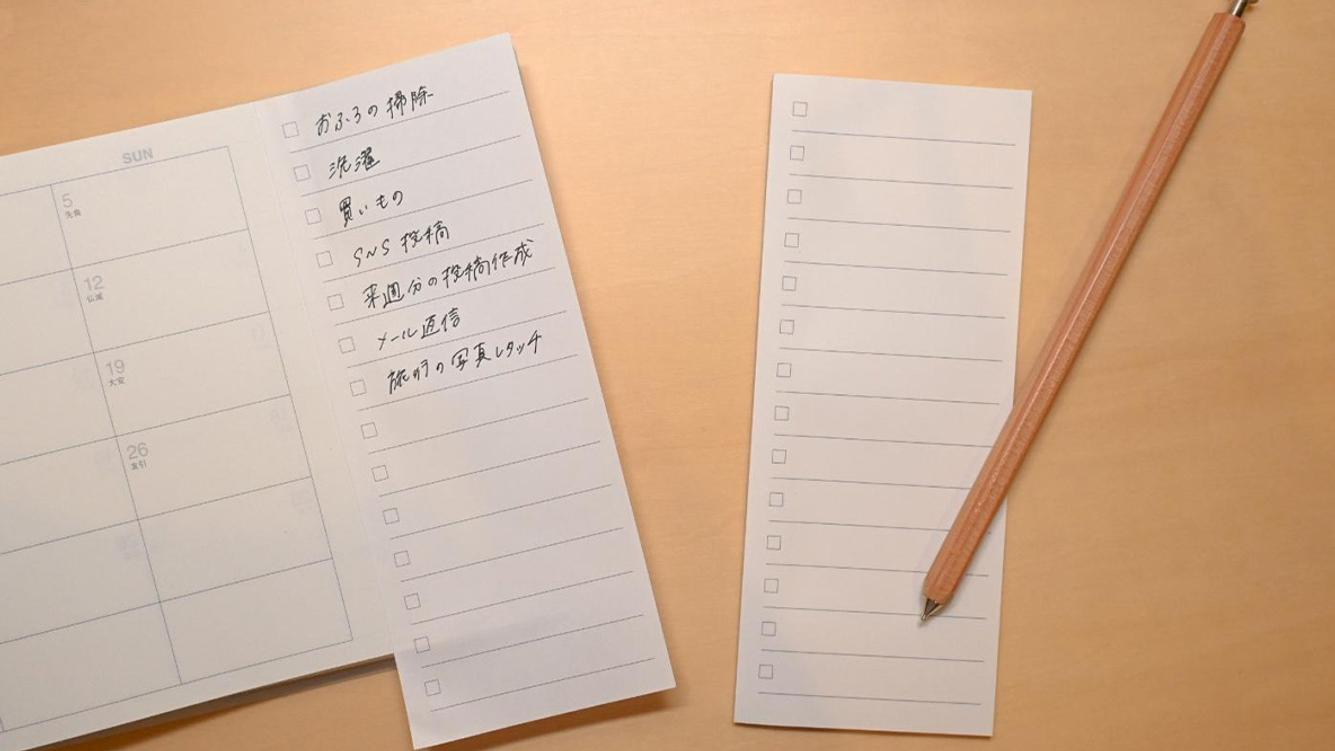 SUN
5
先負
12
仏滅
19
大安
26
友引
おふろの掃除
洗濯
買いもの
SNS 投稿
来週分の投稿作成
メール返信
旅行の写真レタッチ